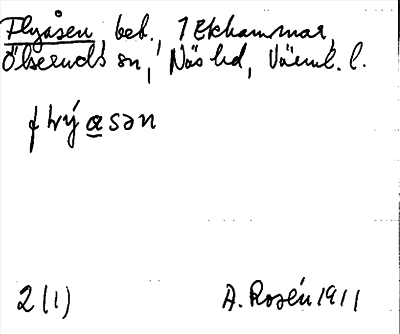 Flyåsen, beb., 1 Ekhammar,
Ölseruds sn, Näs hd, Värml. l.
2 (1) A. Rosén 1911